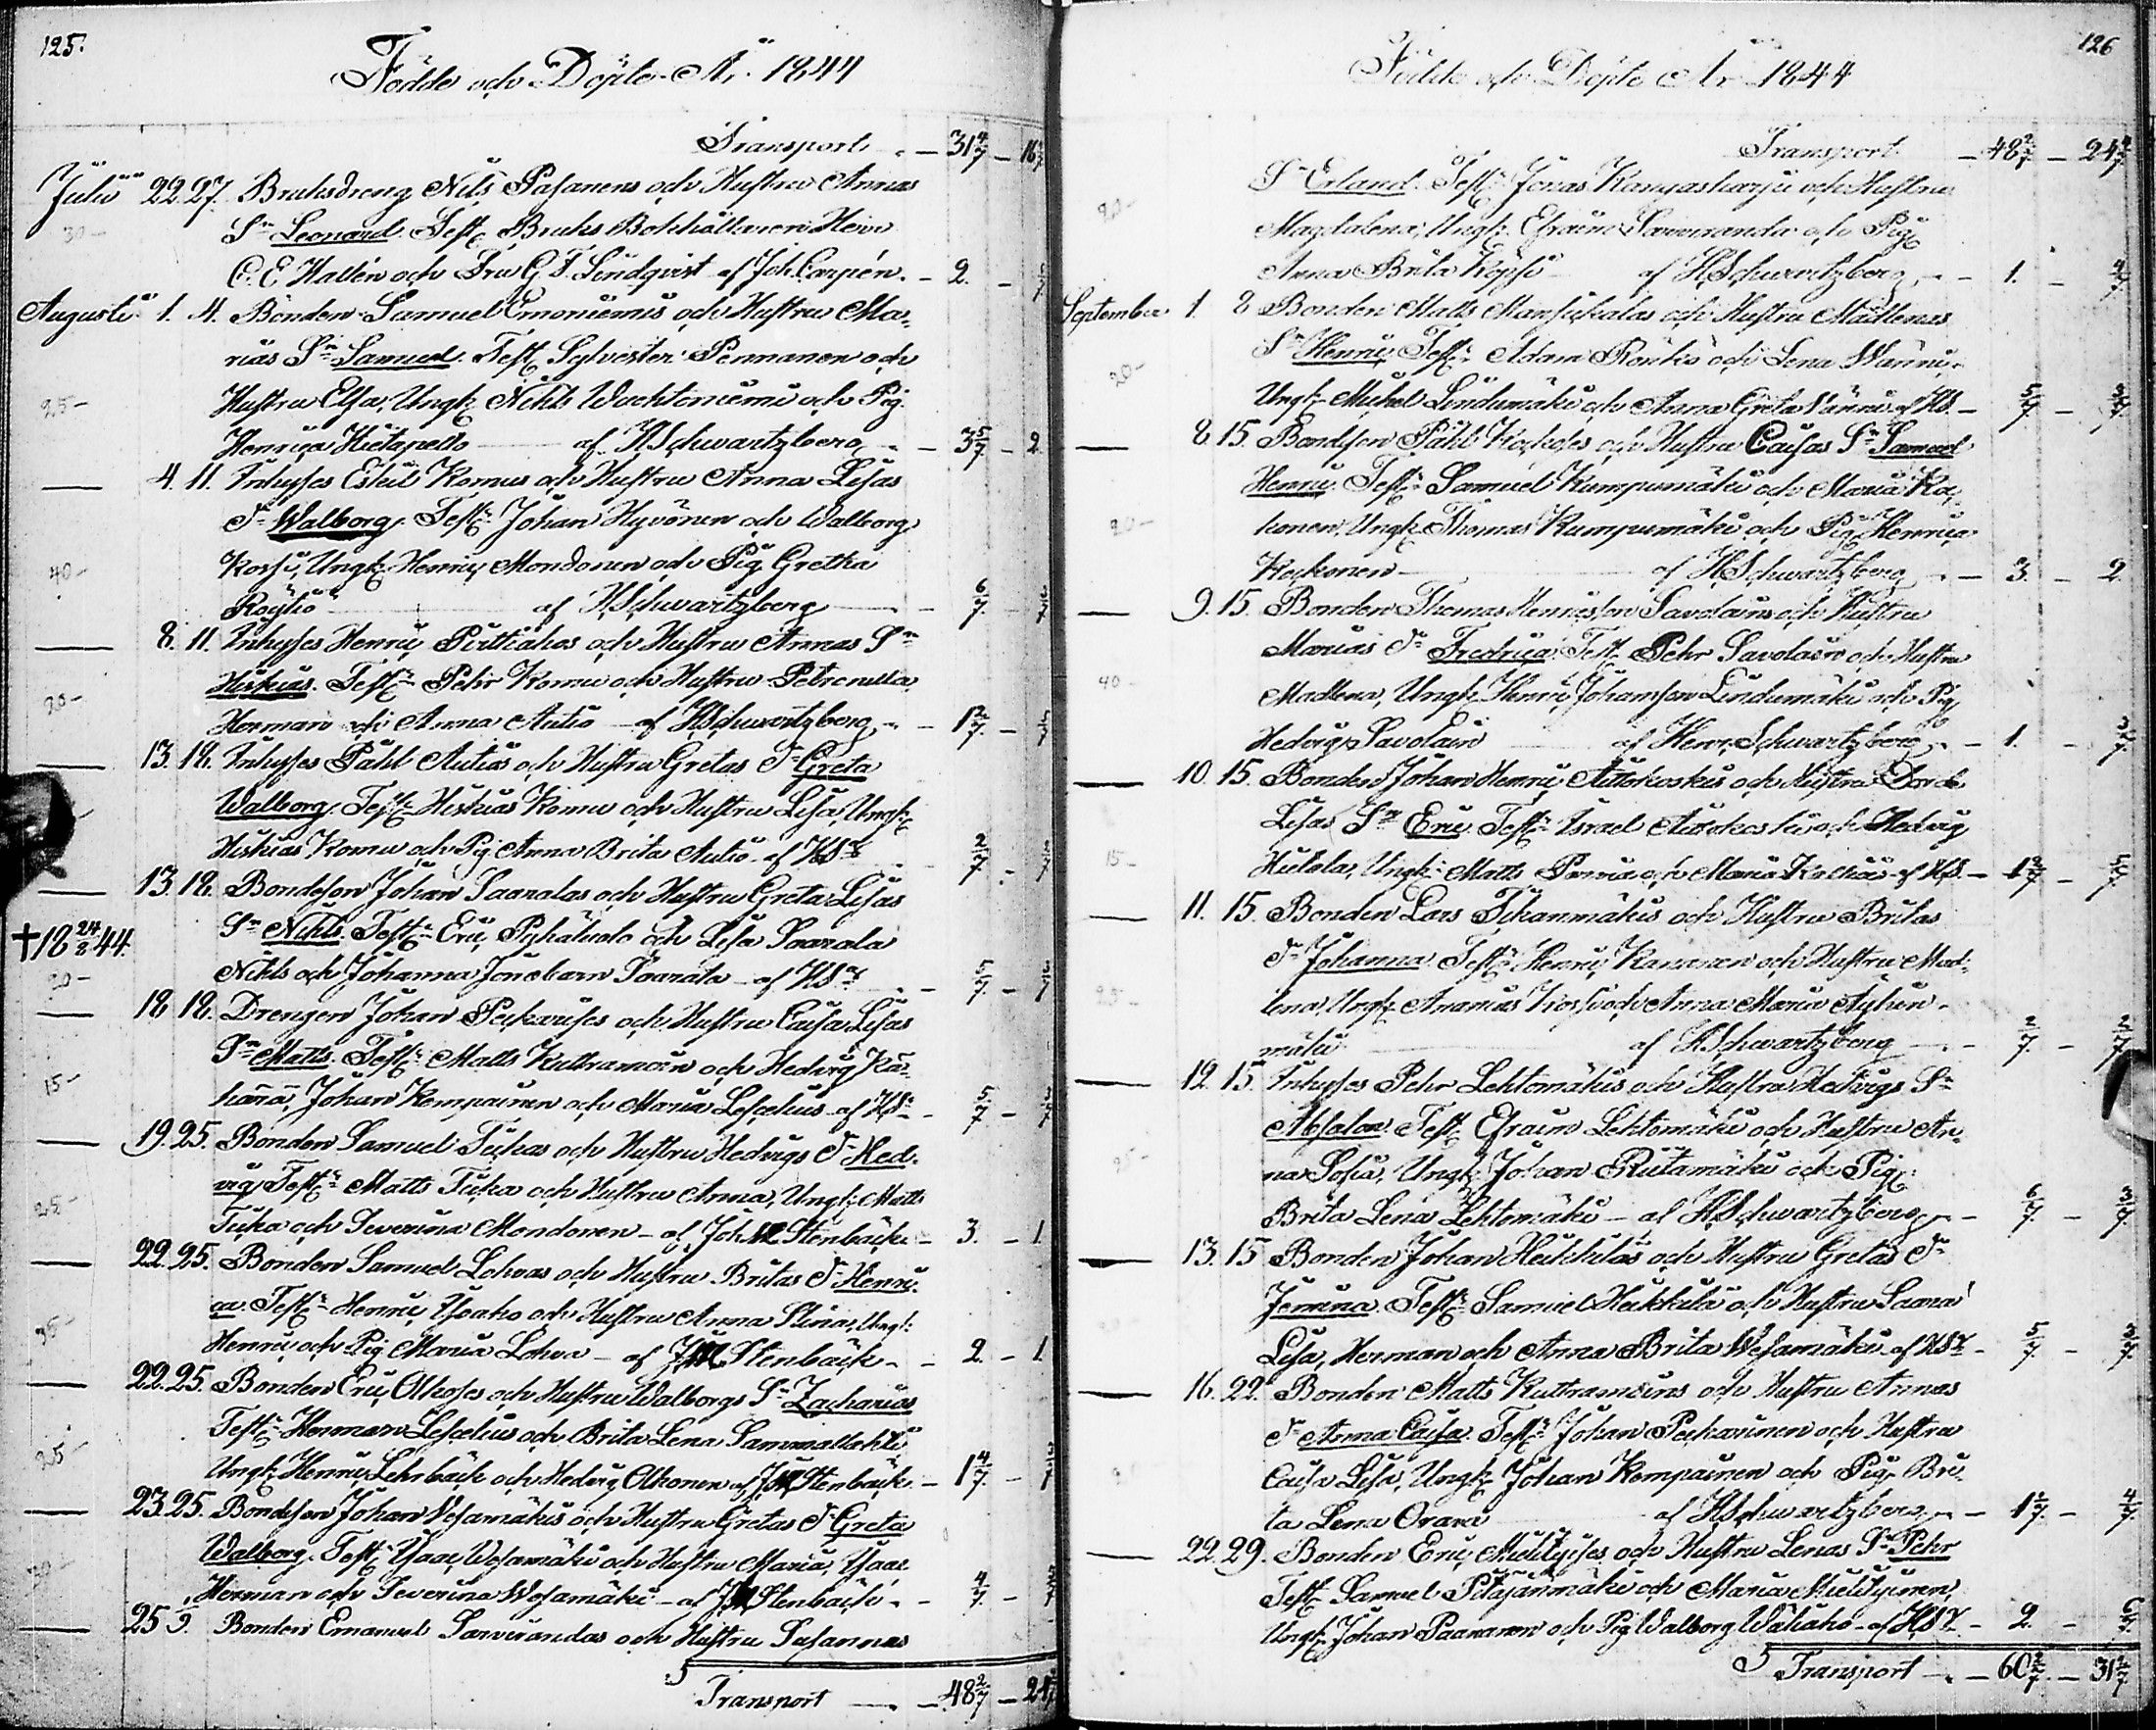 125.
Födde och Döpte År 1844
Transport - 31 4/7 - 16
Julii 22. 27. Bruksdreng Nils Pasanens och Hustru Annas
30- Sn Leonard. Test. Bruks Bokhållaren Herr
C. E. Hallén och Fru G. F. Lindqvist af Joh. Carpén. - 2. -
Augusti 1. 4. Bonden Samuel Emoniemis och Hustru Ma-
rias Sn Samuel. Test. Sylvester Pennanen och
25- Hustru Elsa, Ungk. Nikls Wachtoniemi och Pig.
Henrica Hietapelto af HSchwartzberg - 3 5/7 - 2
4. 11. Inhyses Eskil Komus och Hustru Anna Lisas
Dr Walborg. Test. Johan Hyvönen och Walborg
40- Korsu, Ungk. Henric Mondonen och Pig. Gretha
Röyhiö af HSchwartzberg - 6/7.
8. 11. Inhyses Henric Piittiahos och Hustru Annas Sn
20- Hiskias. Test. Pehr Komu och Hustru Petronella,
Herman och Anna Autio - af HSchwartzberg - 1 2/7.
13. 18. Inhyses Påhl Autios och Hustru Gretas Dr Greta
Walborg. Test. Hiskias Komu och Hustru Lisa, Ungk.
Hiskias Komu och Pig. Anna Brita Autio - af HSz 2/7
13. 18. Bondeson Johan Saaralas och Hustru Greta Lisas
† 18 24/8 44. Sn Nikls. Test. Eric Pyhäluoto och Lisa Saarala
20- Nikls och Johanna Jonebarn Saarala - af HSz 5/7.
18. 18. Drengen Johan Peckarises och Hustru Caisa Lisas
Sn Matts. Test. Matts Kuttramoin och Hedvig Kär-
15- hänä, Johan Kempainen och Maria Lesselius - af HSz 5/7
19. 25. Bonden Samuel Tuhas och Hustru Hedvigs Dr Hed-
vig. Test. Matts Tuka och Hustru Anna, Ungk. Matts
25- Tuka och Severina Mondonen - af Joh. M. Stenbäck - 3. - 1.
22. 25. Bonden Samuel Lohvas och Hustru Britas Dr Henri-
ca. Test. Henric Ysaho och Hustru Anna Stina, Ungk.
Henric och Pig. Maria Lohva - af JM Stenbäck - 2. - 1.
22. 25. Bonden Eric Alhoses och Hustru Walborgs Sn Zacharias
25- Test. Herman Lesselius och Brita Lena Sammallahti
Ungk. Henric Lehrbäck och Hedvig Alhonen af JM Stenbäck - 1 4/7.
23. 25. Bondeson Johan Vesamäkis och Hustru Gretas Dr Greta
20- Walborg. Test. Ysaac Wesamäki och Hustru Maria, Ysaac
Herman och Severina Wesamäki - af JM Stenbäck - 4/7
25 1/9. Bonden Emanuel Sarvirandas och Hustru Susannas
Transport - 48 2/7 - 24
126
Födde och Döpte År 1844
Transport - 48 2/7 - 24
20- Sn Erland. Test. Jonas Kangasharju och Hustru
Magdalena, Ungk. Efraim Sarviranda och Pig.
Anna Brita Köpsi af HSchwartzberg - 1. - 4/7
September 1. 8 Bonden Matts Mansikalas och Hustru Madlenas
20- Sn Henric. Test. Adam Rönkö och Lena Wänni,
Ungk. Mickel Lindumäki och Anna Greta Vänni af HS. - 5/7 -
8. 15. Bondeson Påhl Kockoses och Hustru Caisas Sn Samuel
Henric. Test. Samuel Kumpumäki och Maria Ko-
20- konen, Ungk. Thomas Kumpumäki och Pig. Henrica
Kockonen af HSchwartzberg - 3. - 2
9. 15. Bonden Thomas Henricsson Savolains och Hustru
Marias Dr Fredrica. Test. Pehr Savolain och Hustru
40- Madlena, Ungk. Henric Johansson Lindumäki och Pig.
Hedvig Savolain af Henr. Schwartzberg - 1. -
10. 15. Bonden Johan Henric Autiokoskis och Hustru
Lisas Sn Eric. Test. Israel Autiokoski och Hedvig
15- Huttola, Ungk. Matts och Maria af HS. - 1 2/7 -
11. 15. Bonden Lars Tikanmäkis och Hustru Britas
Dr Johanna. Test. Henric Kananen och Hustru Mad-
25- lena, Ungk. Ananias Korsi och Anna Maria Tyhin-
mäki af HSchwartzberg - 2/7 - 2/7
12. 15. Inhyses Pehr Lehtomäkis och Hustru Hedvigs Sn
Absalon. Test. Efraim Lehtomäki och Hustru An-
25- na Sofia, Ungk. Johan Riitamäki och Pig.
Brita Lena Lehtomäki - af HSchwartzberg - 6/7. - 3/7
13. 15 Bonden Johan Heickiläs och Hustru Gretas Dr
Jemina. Test. Samuel Heikkilä och Hustru Saara
Lisa, Herman och Anna Brita Wesamäki af HSz - 5/7. -
16. 22. Bonden Matts Kuttramoins och Hustru Annas
Dr Anna Caisa. Test. Johan Peckarinen och Hustru
Caisa Lisa, Ungk. Johan Kempainen och Pig. Bri-
ta Lena Ovara af HSchwartzberg - 1 1/7. - 4/7
22. 29. Bonden Eric Mielityises och Hustru Lenas Sn Pehr
Test. Samuel Pitäjänmäki och Maria Mielityinen,
Ungk. Johan Paananen och Pig. Walborg Wähäaho - af HSz - 2. -
Transport - 60 2/7 - 31 2/7